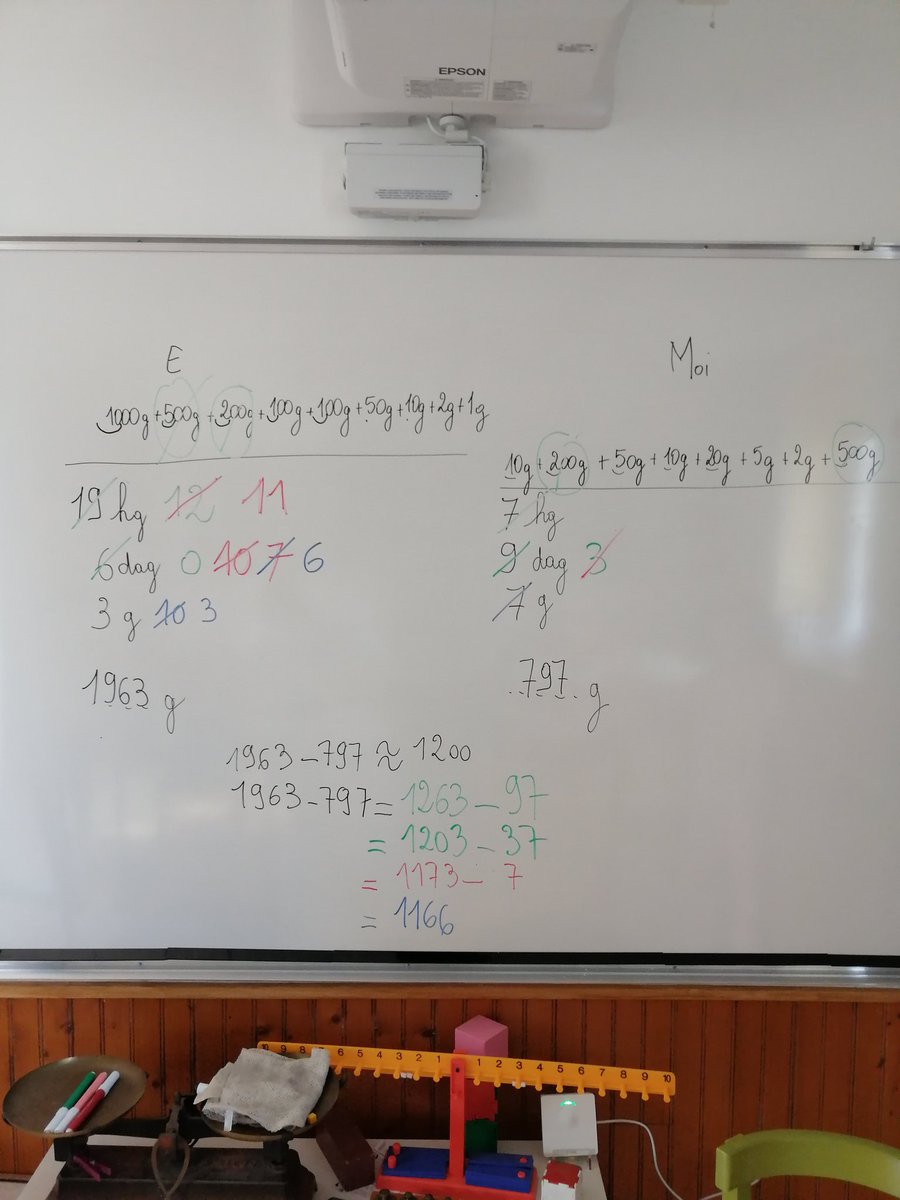 EPSON
E
1000g+500g+200g+100g+100g+50g+10g+2g+1g
19 hg 12 11
6 dag 0 10 7 6
3 g 10 3
1963 g
Moi
10g+200g+50g+10g+20g+5g+2g+500g
7 hg
9 dag 3
7 g
797 g
1963-797≈1200
1963-797=1263-97
=1203-37
=1173-7
=1166
10 9 8 7 6 5 4 3 2 1 1 2 3 4 5 6 7 8 9 10